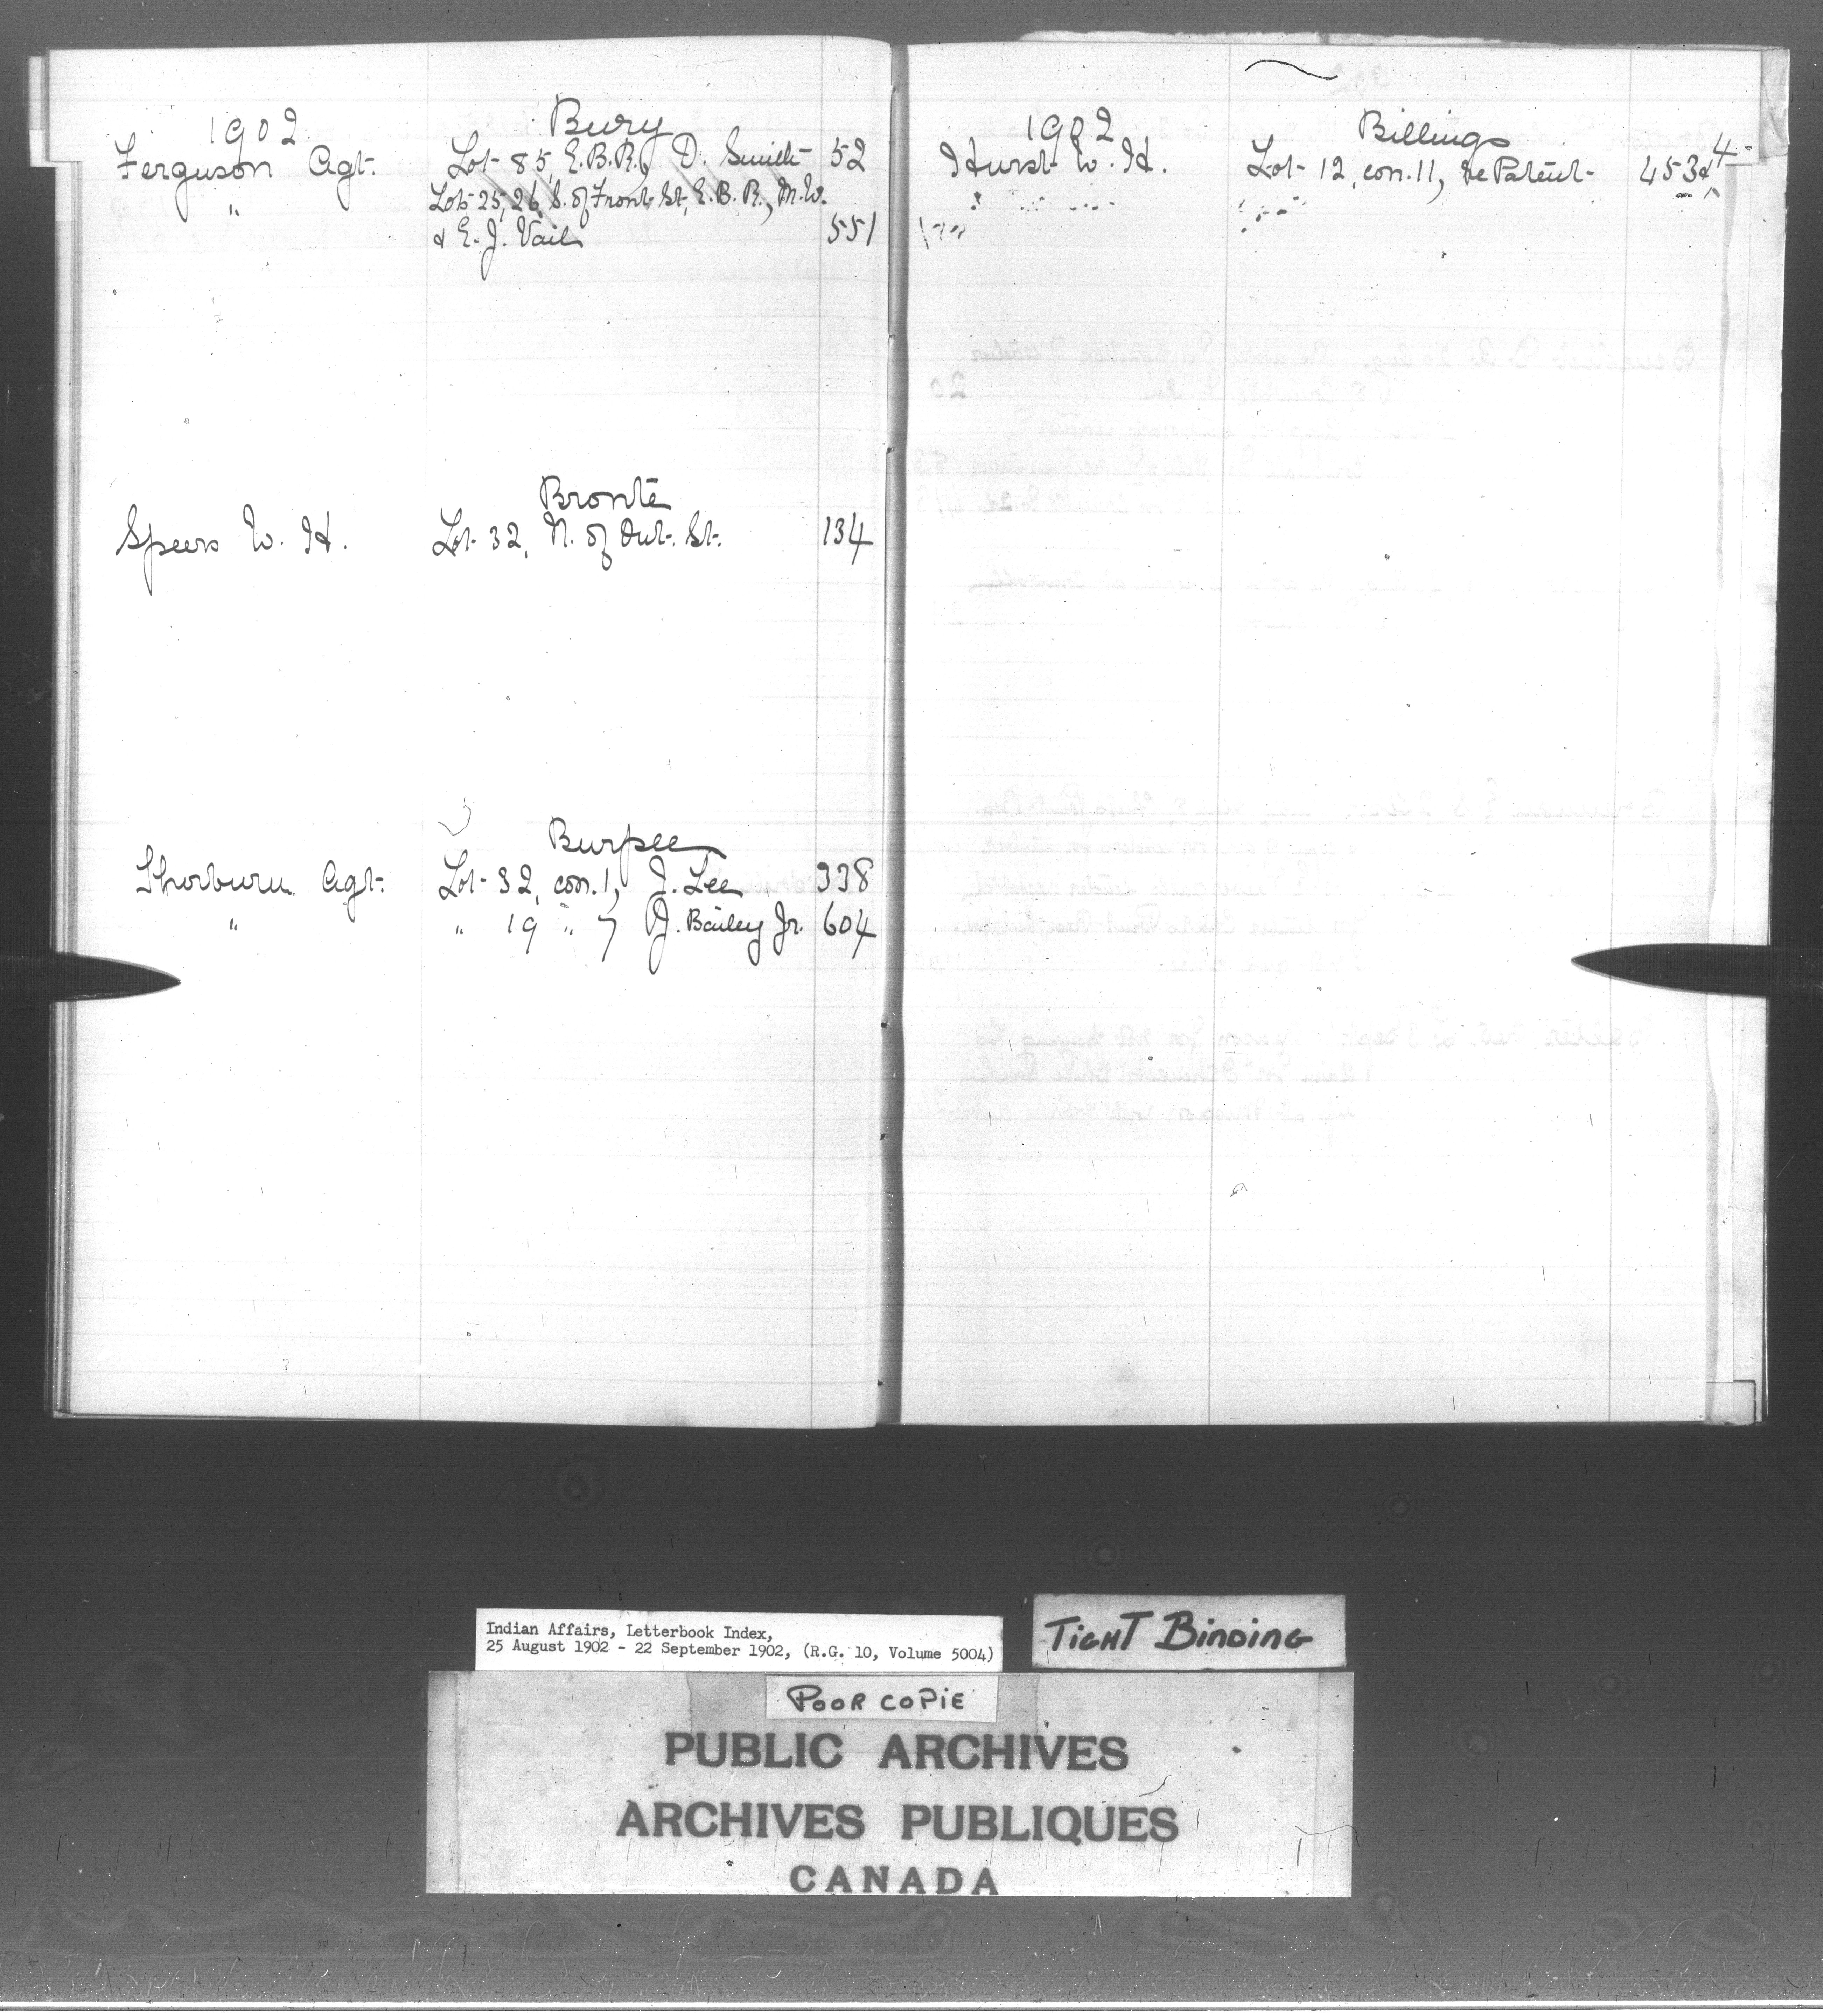 1902
Bury
Ferguson Agt. Lot 85, E.B.R., D. Smith 52
" Lots 25, 26, S. of Front St., E.B.R., M.W.
& E. J. Vail 551
Bronte
Speers W. H. Lot 32, N. of Ont. St. 134
Burpee
Thorburn Agt. Lot 32, con. 1, J. Lee 338
" " 19 " 7 J. Bailey Jr. 604
1902
Billings
Hurst W. H. Lot 12, con. 11, re Patent 453 & 4
Indian Affairs, Letterbook Index,
25 August 1902 - 22 September 1902, (R.G. 10, Volume 5004)
TIGHT BINDING
POOR COPIE
PUBLIC ARCHIVES
ARCHIVES PUBLIQUES
CANADA